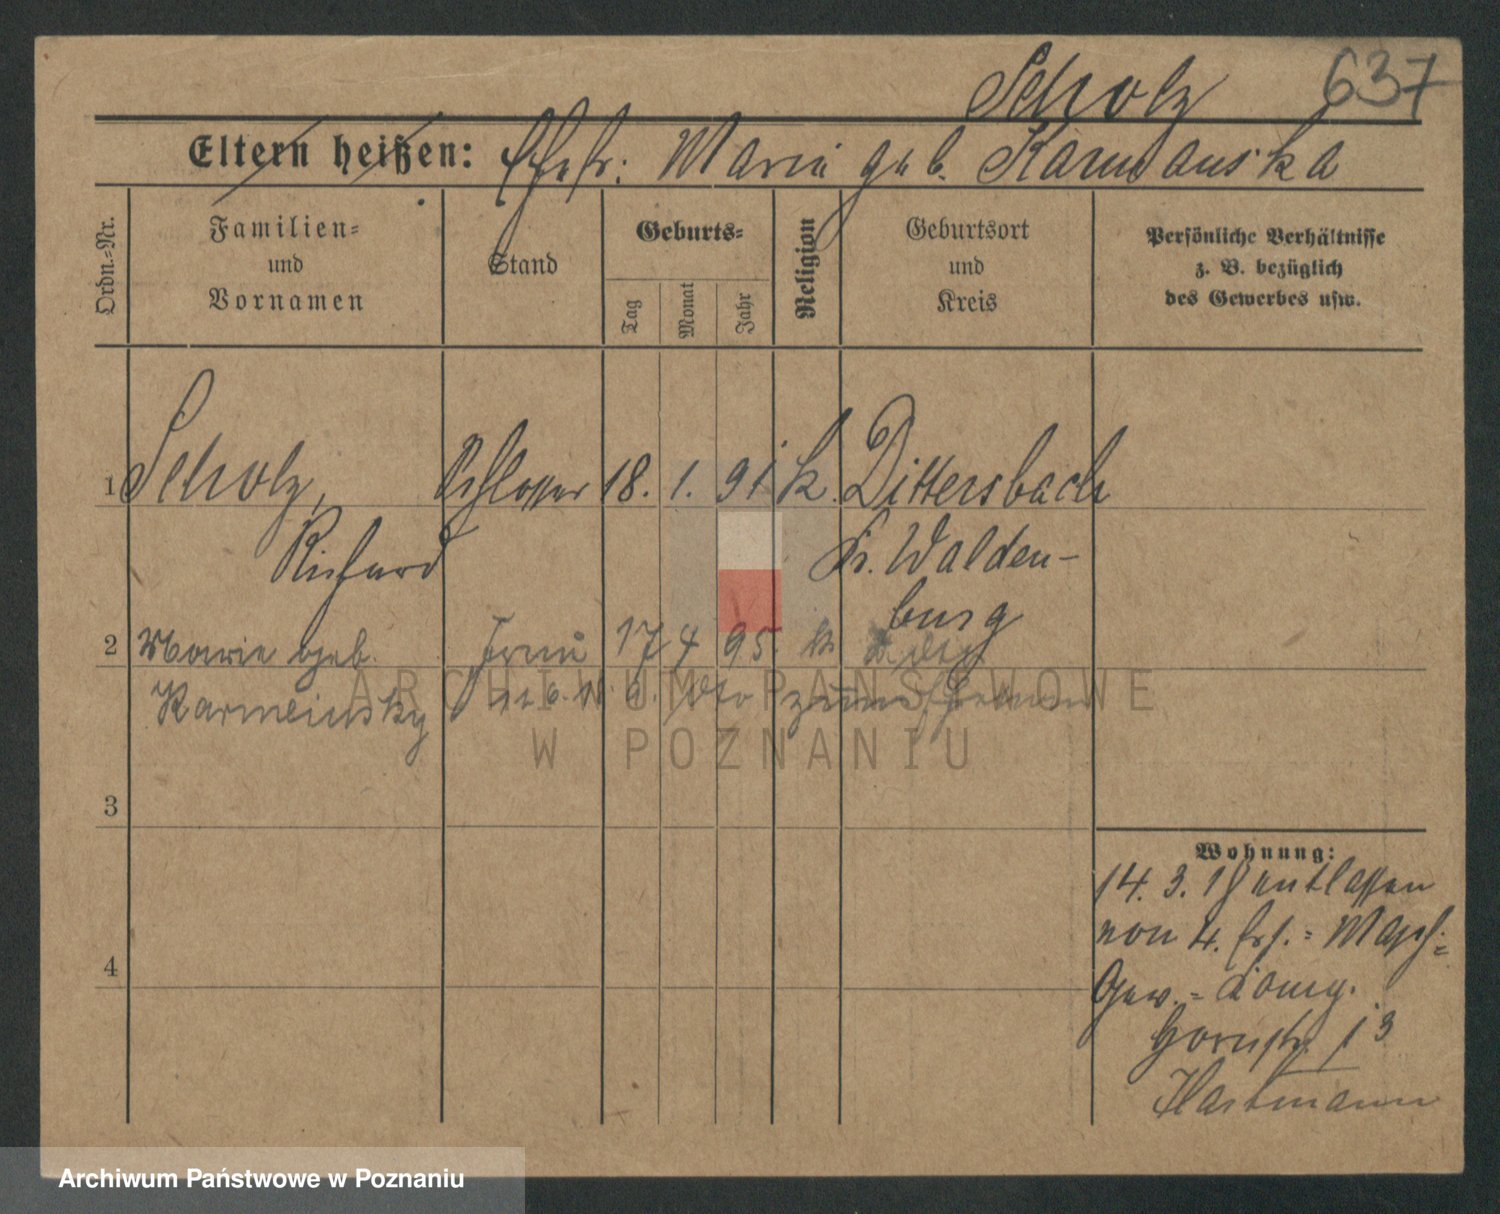 Scholz 637
Eltern heißen: Ehefr: Marie geb. Karmanska
Ordn.=Nr.
Familien=
und
Vornamen
Stand
Geburts=
Tag
Monat
Jahr
Religion
Geburtsort
und
Kreis
Persönliche Verhältnisse
z. B. bezüglich
des Gewerbes usw.
1 Scholz, Schlosser 18. 1. 91 k. Dittersbach
Richard Kr. Walden-
burg
2 Marie geb. Frau 17 4 95. k.
Karmeinsky
ARCHIWUM PAŃSTWOWE
W POZNANIU
3
4
Wohnung:
14. 3. 18 entlassen
von 4. Ers.= Masch=
Gew.=Komp.
13
Hartmann
Archiwum Państwowe w Poznaniu